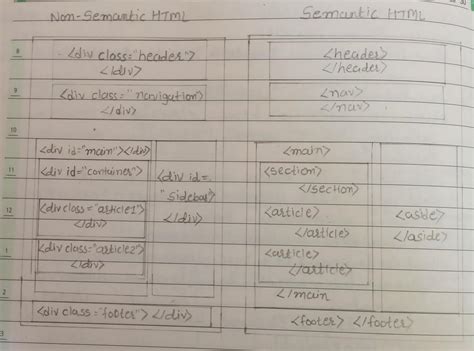 Non-Semantic HTML
Semantic HTML
8
<div class="header">
</div>
<header>
</header>
9
<div class="navigation">
</div>
<nav>
</nav>
10
<div id="main"></div>
<main>
11
<div id="container">
<div id=
"sidebar>
</div>
<section>
</section>
12
<div class="article1">
</div>
<article>
</article>
<aside>
</aside>
1
<div class="article2">
</div>
<article>
</article>
2
</main
<div class="footer"> </div>
<footer> </footer>
3